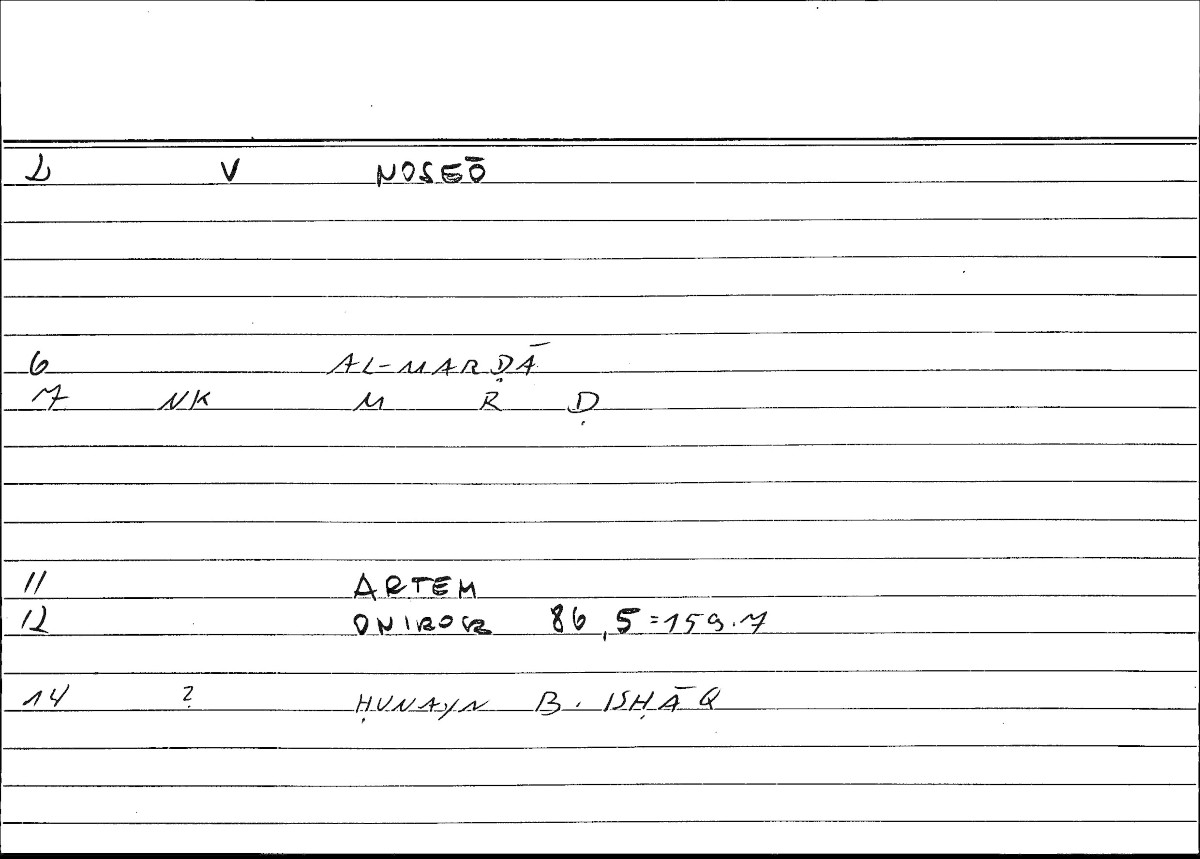 2 V NOSEŌ
6 AL-MARḌĀ
7 NK M R Ḍ
11 ARTEM
12 ONIROCR 86,5=159.7
14 ? ḤUNAYN B. ISḤĀQ